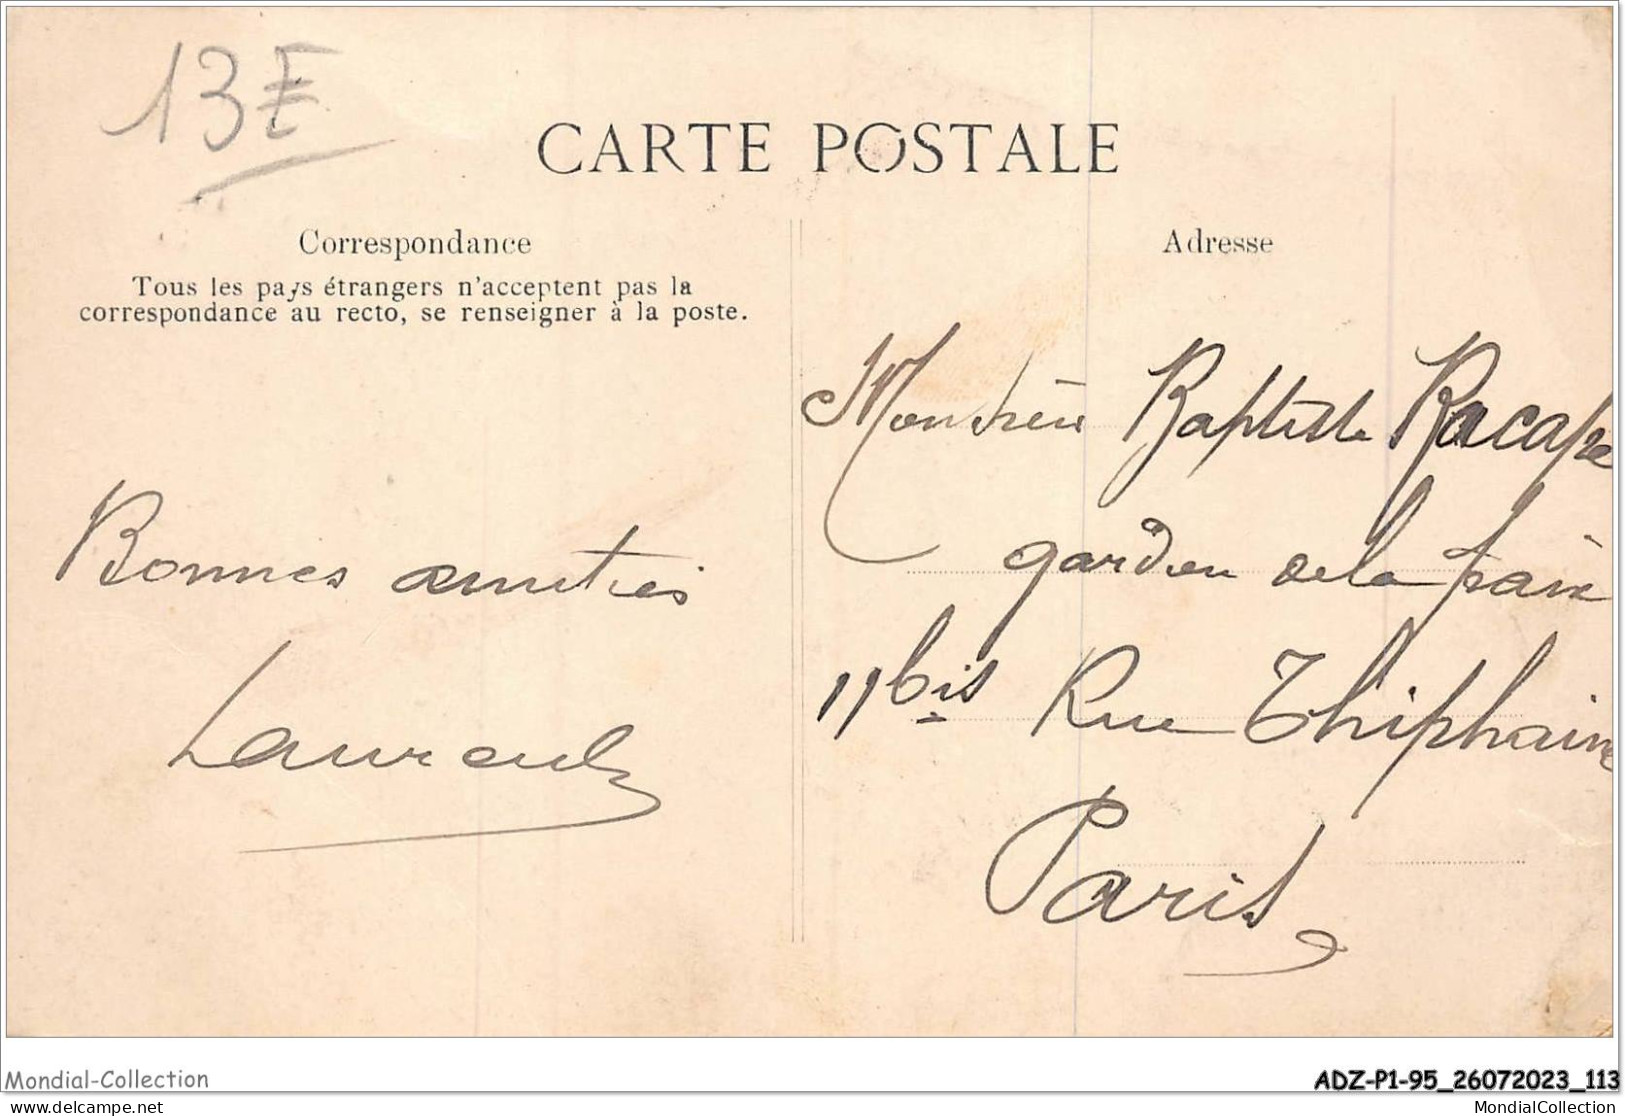 13F
CARTE POSTALE
Correspondance
Tous les pays étrangers n'acceptent pas la
correspondance au recto, se renseigner à la poste.
Bonnes amitiés
Laurent
Adresse
Monsieur Baptiste Racape
gardien de la paix
11 bis Rue Thiphaine
Paris
Mondial-Collection
ADZ-P1-95_26072023_113
delcampe.net
MondialCollection